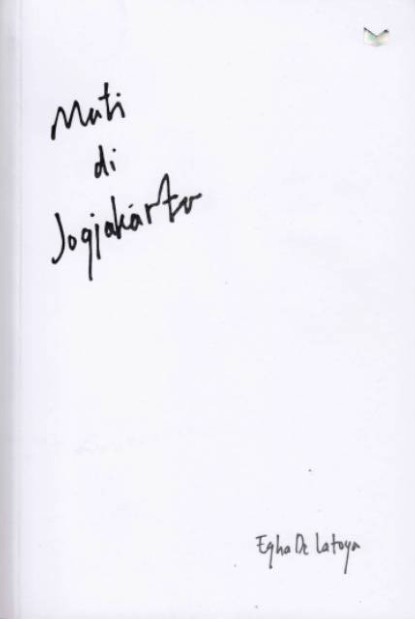 Mati
di
Jogjakarta
Egha De Latoya